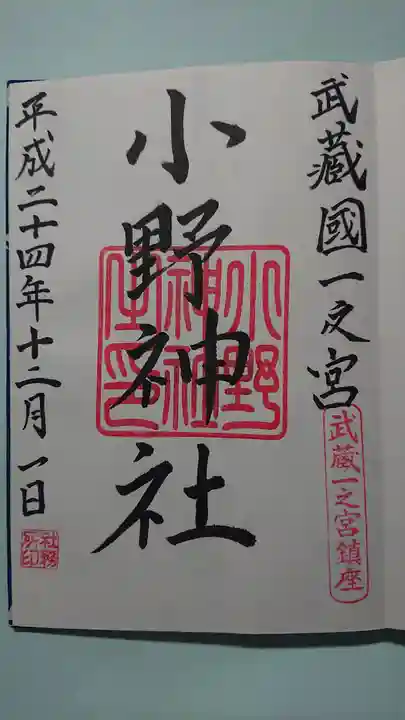 武藏國一之宮
武蔵一之宮鎮座
小野神社
小野神社
平成二十四年十二月一日
社務所印